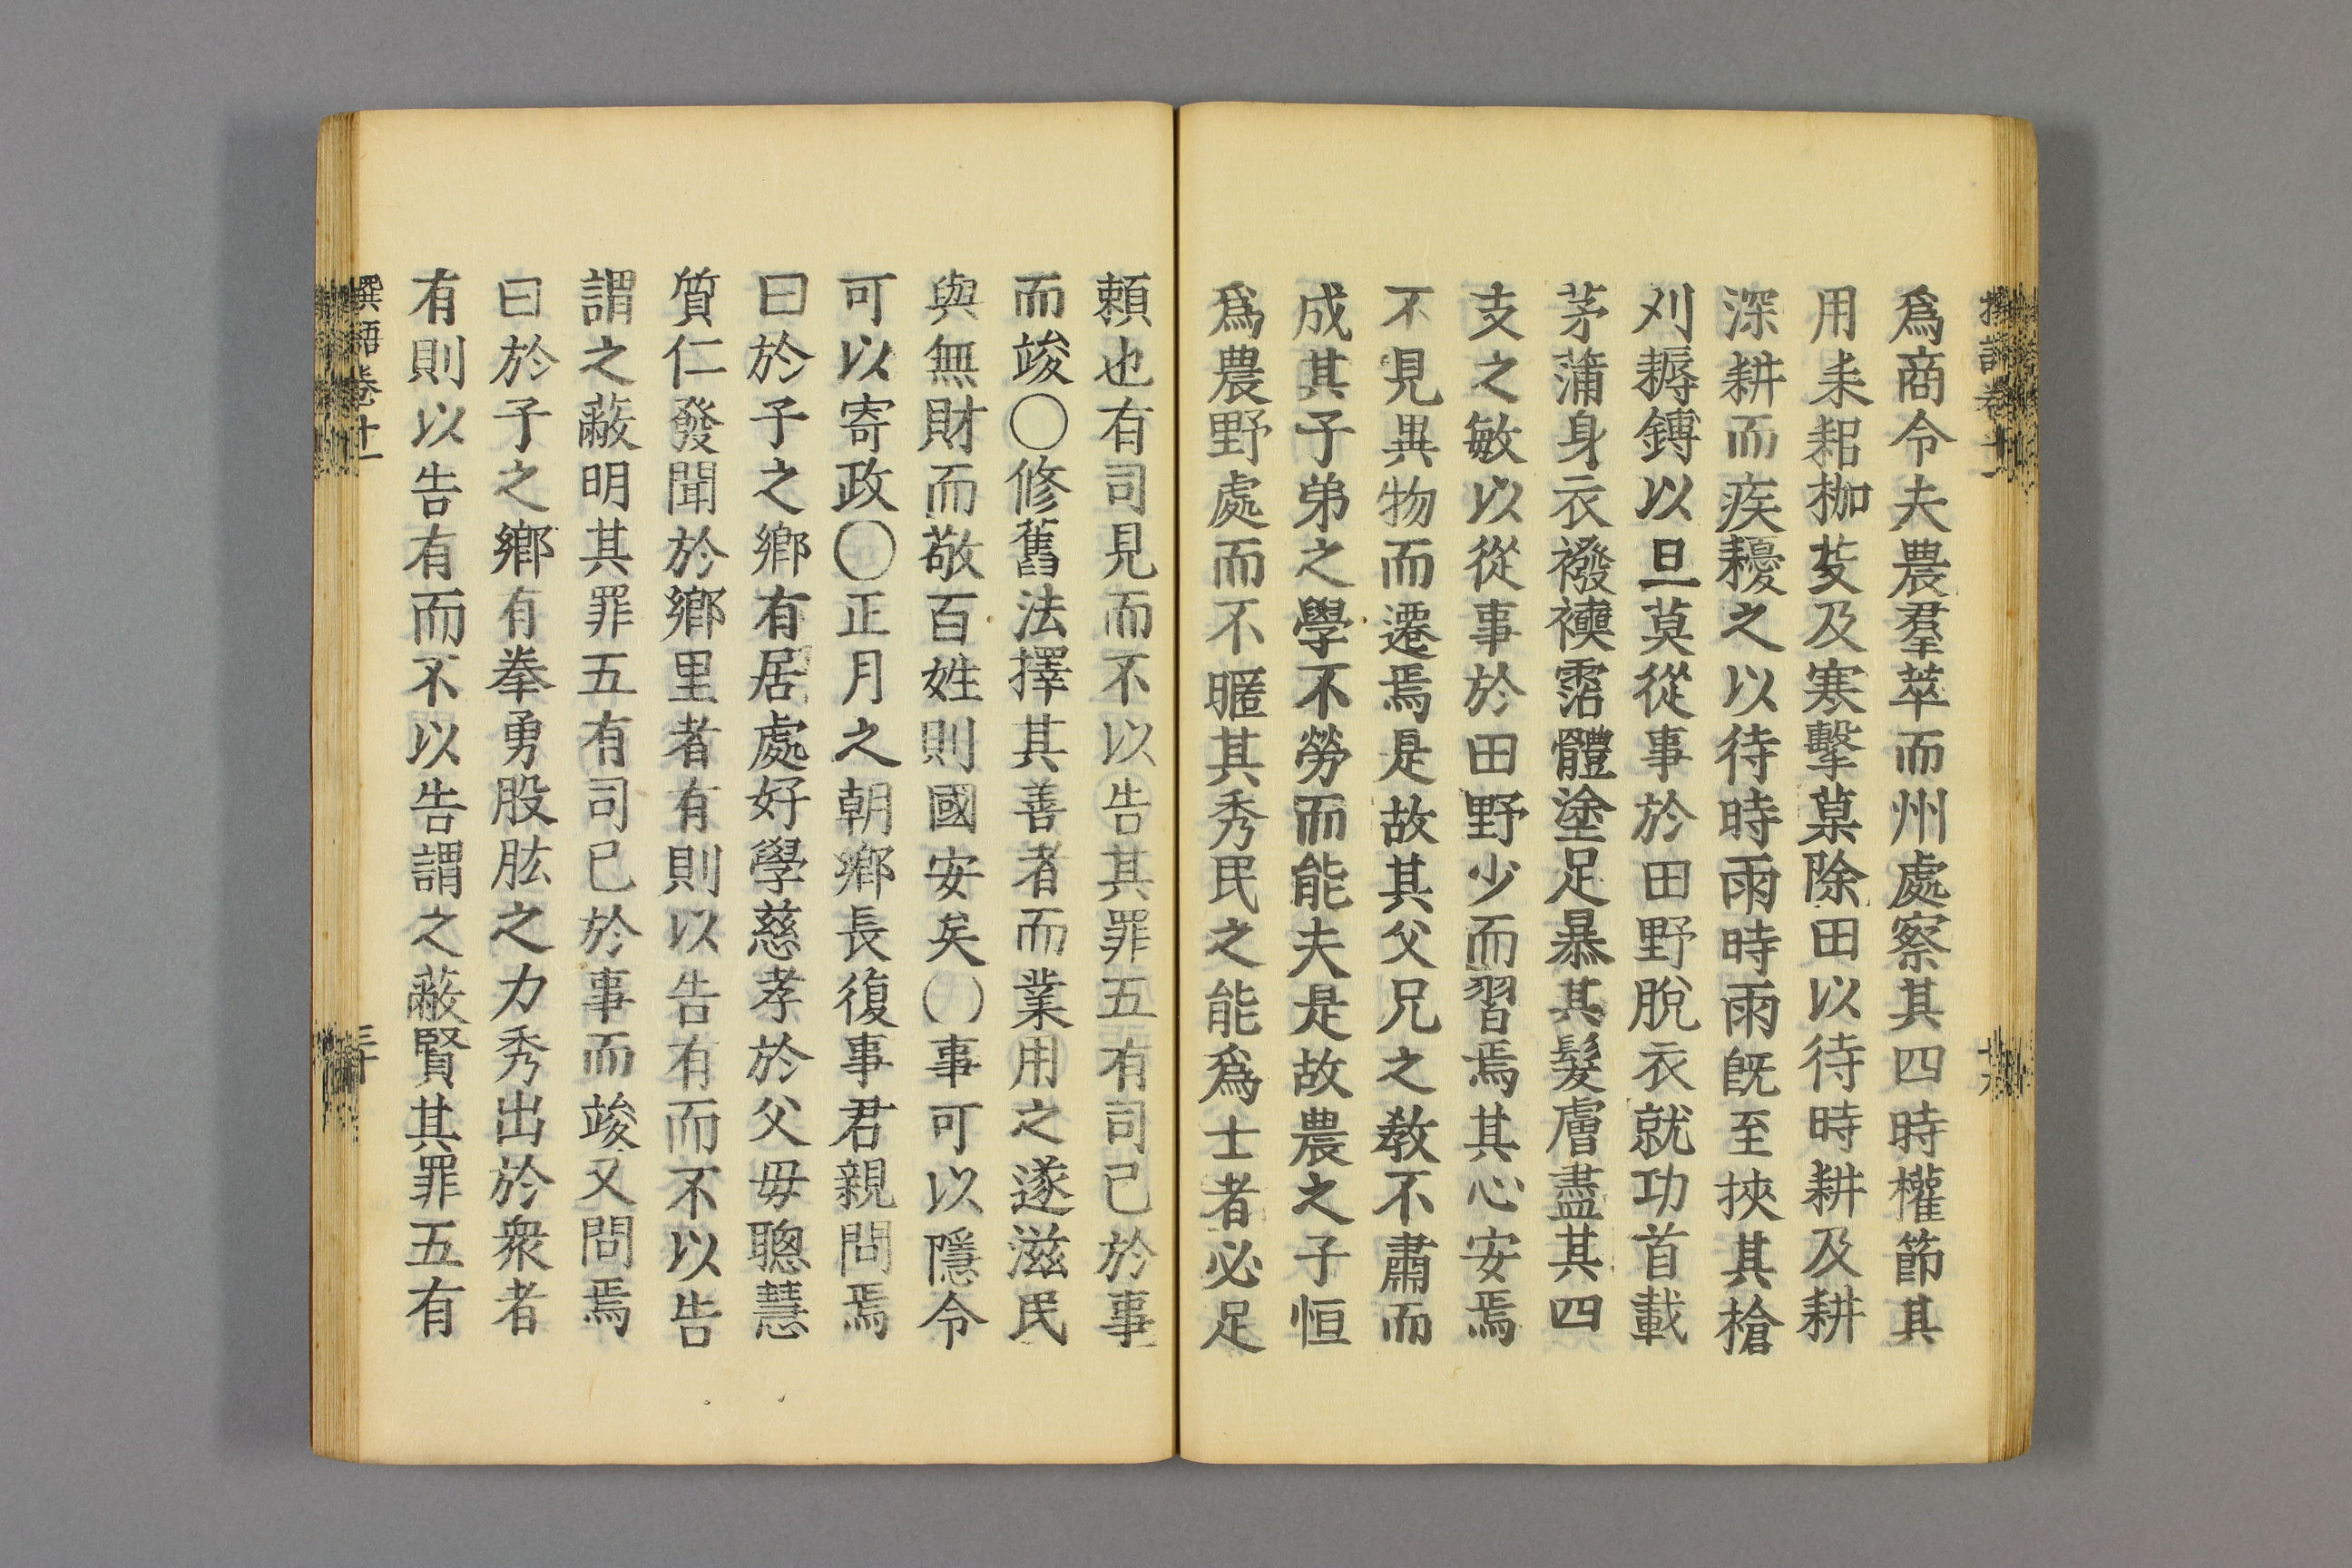 爲商令夫農羣萃而州處察其四時權節其
用耒耜枷芟及寒擊菒除田以待時耕及耕
深耕而疾耰之以待時雨時雨旣至挾其槍
刈耨鎛以旦莫從事於田野脫衣就功首載
茅蒲身衣襏襫霑體塗足暴其髮膚盡其四
支之敏以從事於田野少而習焉其心安焉
不見異物而遷焉是故其父兄之敎不肅而
成其子弟之學不勞而能夫是故農之子恒
爲農野處而不暱其秀民之能爲士者必足
賴也有司見而不以告其罪五有司已於事
而竣〇修舊法擇其善者而業用之遂滋民
與無財而敬百姓則國安矣〇事可以隱令
可以寄政〇正月之朝鄉長復事君親問焉
曰於子之鄉有居處好學慈孝於父母聰慧
質仁發聞於鄉里者有則以告有而不以告
謂之蔽明其罪五有司已於事而竣又問焉
曰於子之鄉有拳勇股肱之力秀出於衆者
有則以告有而不以告謂之蔽賢其罪五有
卷十一 三十